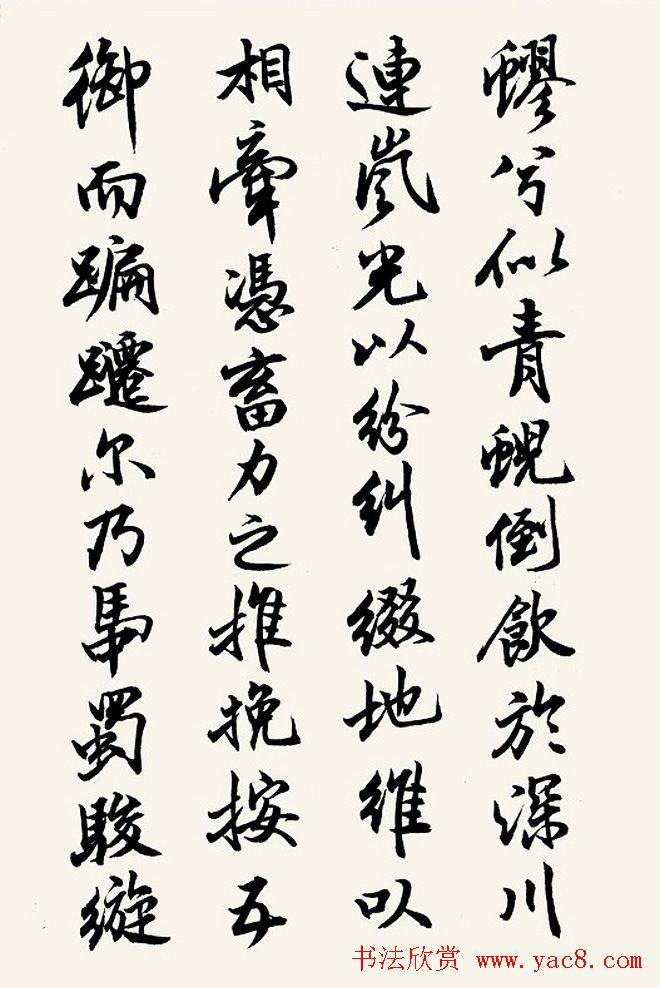 蟉兮似青蜺倒飲於深川
連嵐光以紛糾綴地維以
相牽憑畜力之推挽按五
御而蹁躚尔乃馽蜀駿縼
书法欣赏 www.yac8.com